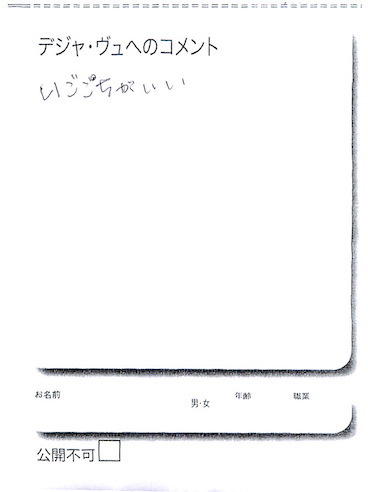 デジャ・ヴュへのコメント
いごごちがいい
お名前
男・女
年齢
職業
公開不可